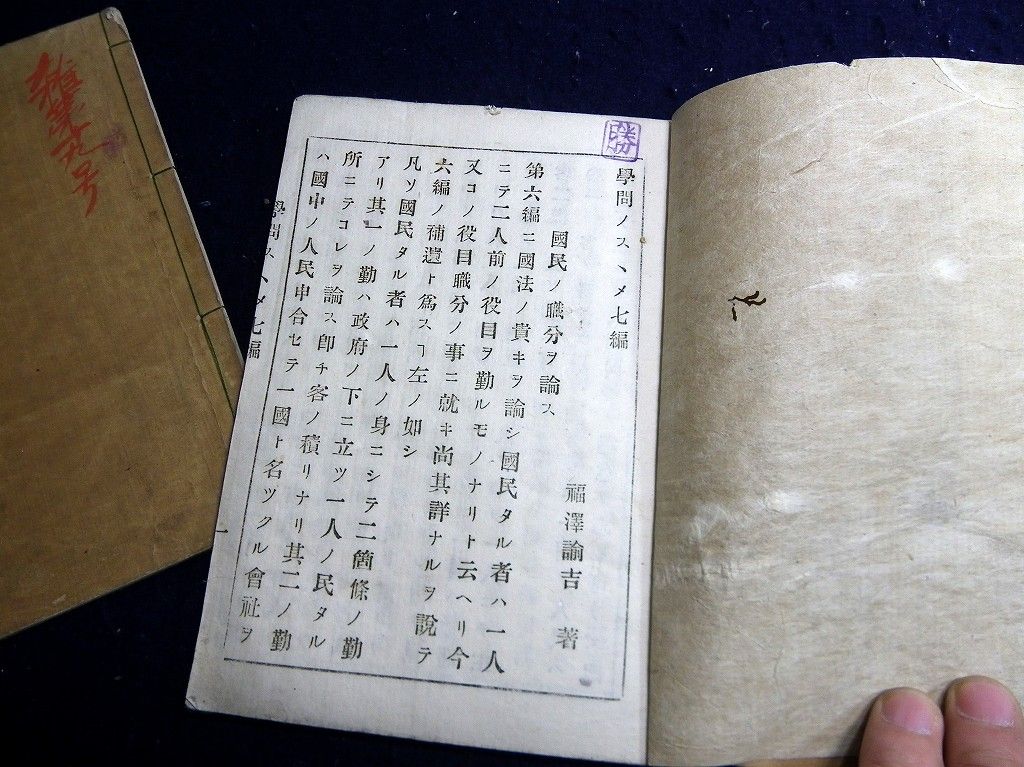 學問ノスヽメ七編
福澤諭吉 著
國民ノ職分ヲ論ス
第六編ニ國法ノ貴キヲ論シ國民タル者ハ一人
ニテ二人前ノ役目ヲ勤ルモノナリト云ヘリ今
又コノ役目職分ノ事ニ就キ尚其詳ナルヲ說テ
六編ノ補遺ト爲スヿ左ノ如シ
凡ソ國民タル者ハ一人ノ身ニシテ二箇條ノ勤
アリ其一ノ勤ハ政府ノ下ニ立ツ一人ノ民タル
所ニテコレヲ論ス卽チ客ノ積リナリ其二ノ勤
ハ國中ノ人民申合セテ一國ト名ツクル會社ヲ
學問スヽメ七編
一